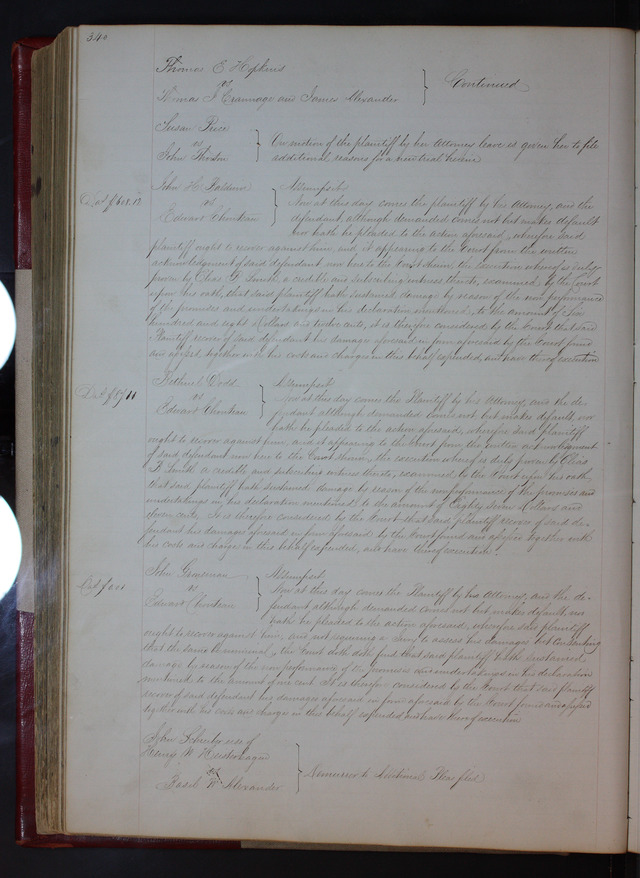 340
Thomas E Hopkins
vs
Thomas J Crammage and James Alexander } Continued
Susan Price
vs
John
On motion of the plaintiff by her Attorney leave is given her to file
additional reasons for a new trial herein
John H.
vs
Edward Chouteau
Assumpsit
Now at this day comes the plaintiff by his Attorney, and the
defendant although demanded comes not but makes default
nor hath he pleaded to the action aforesaid, wherefore said
plaintiff ought to recover against him, and it appearing to the Court from the written
acknowledgement of said defendant now here to the Court shown, the execution whereof is duly
proven by Elias T. Smith a credible and subscribing witness thereto, examined by the Court
upon his oath, that said plaintiff hath sustained damage by reason of the non performance
of the promises and undertakings in his declaration mentioned, to the amount of Six
hundred and eight Dollars and twelve cents, it is therefore considered by the Court that said
Plaintiff recover of said defendant his damage aforesaid in form aforesaid by the Court found
and assessed together with his costs and charges in this behalf expended, and have thereof execution
Dodd
vs
Edward Chouteau
Assumpsit
Now at this day comes the Plaintiff by his Attorney, and the de-
fendant although demanded comes not but makes default nor
hath he pleaded to the action aforesaid, wherefore said plaintiff
ought to recover against him, and it appearing to the Court from the written acknowledgement
of said defendant now here to the Court shown, the execution whereof is duly proven by Elias
T. Smith a credible and subscribing witness thereto, examined by the Court upon his oath,
that said plaintiff hath sustained damage by reason of the nonperformance of the promises and
undertakings in his declaration mentioned to the amount of Eighty Seven Dollars and
Eleven cents. It is therefore considered by the Court that said plaintiff recover of said de-
fendant his damages aforesaid in form aforesaid by the Court found and assessed together with
his costs and charges in this behalf expended, and have thereof execution.
John Grossman
vs
Edward Chouteau
Assumpsit
Now at this day comes the Plaintiff by his Attorney, and the de-
fendant although demanded comes not but makes default, nor
hath he pleaded to the action aforesaid, wherefore said plaintiff
ought to recover against him, and not requiring a Jury to assess his damages but consenting
that the same be nominal, the Court doth find that said plaintiff hath sustained
damage by reason of the non performance of the promises and undertakings in his declaration
mentioned to the amount of one cent. It is therefore considered by the Court that said plaintiff
recover of said defendant his damages aforesaid in form aforesaid by the Court found and assessed
together with his costs and charges in this behalf expended and have thereof execution
John use of
Henry W.
vs
Basil W. Alexander } Demurrer to Additional Pleas filed